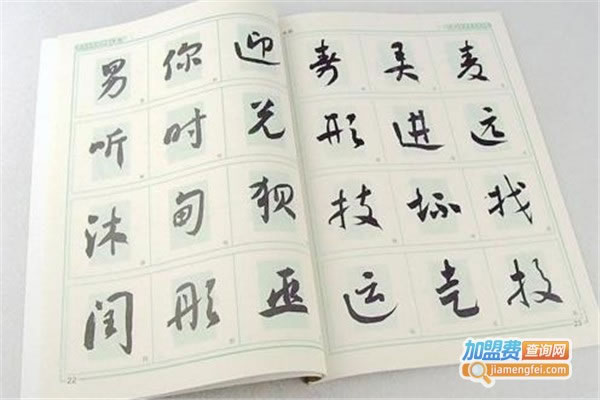 男 你 迎
听 时 兑
沐 甸 狈
闰 彤 巫
22
寿 麦
形 进 远
技 坏 找
运 投
23
加盟费查询网
jiamengfei.com